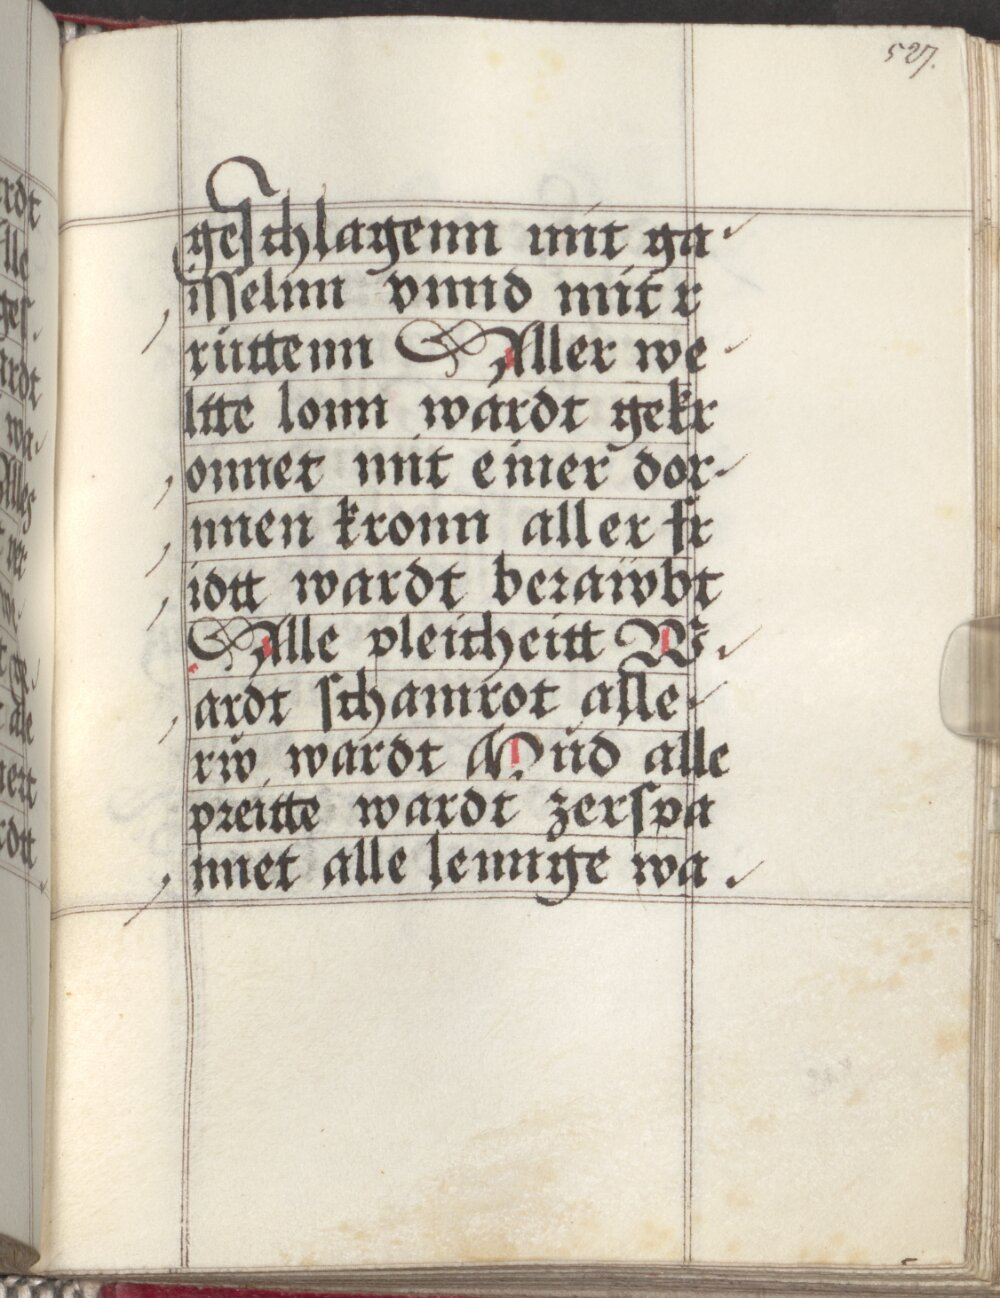 527.
geschlagenn mit ga
isselnn vnnd mit r
rüttenn Aller we
ltte lonn wardt gekr
onnet mit einer dor
nnen kronn aller fr
idtt wardt berawbt
Alle pleitheitt W
ardt schamrot alle
riv wardt Vnd alle
preitte wardt zerspa
nnet alle lennge wa